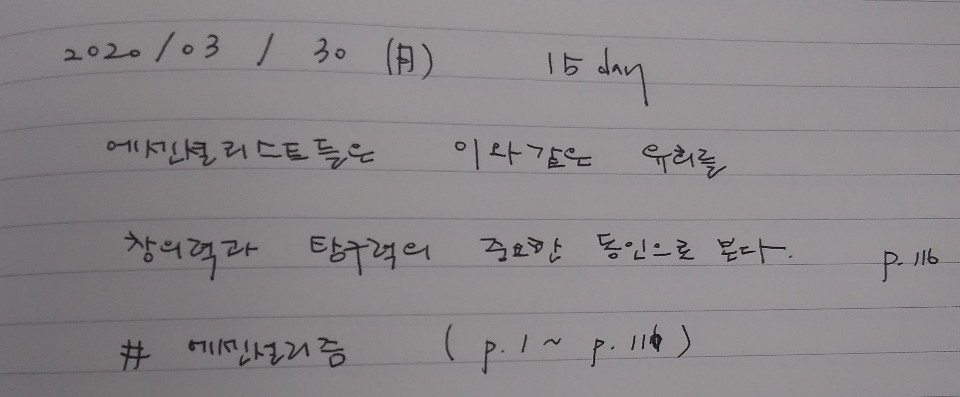 2020/03/30 (月) 15 day
에센셜리스트들은 이와같은 유희를
창의력과 탐구력의 중요한 동인으로 본다. p.116
# 에센셜리즘 (p.1 ~ p.116)